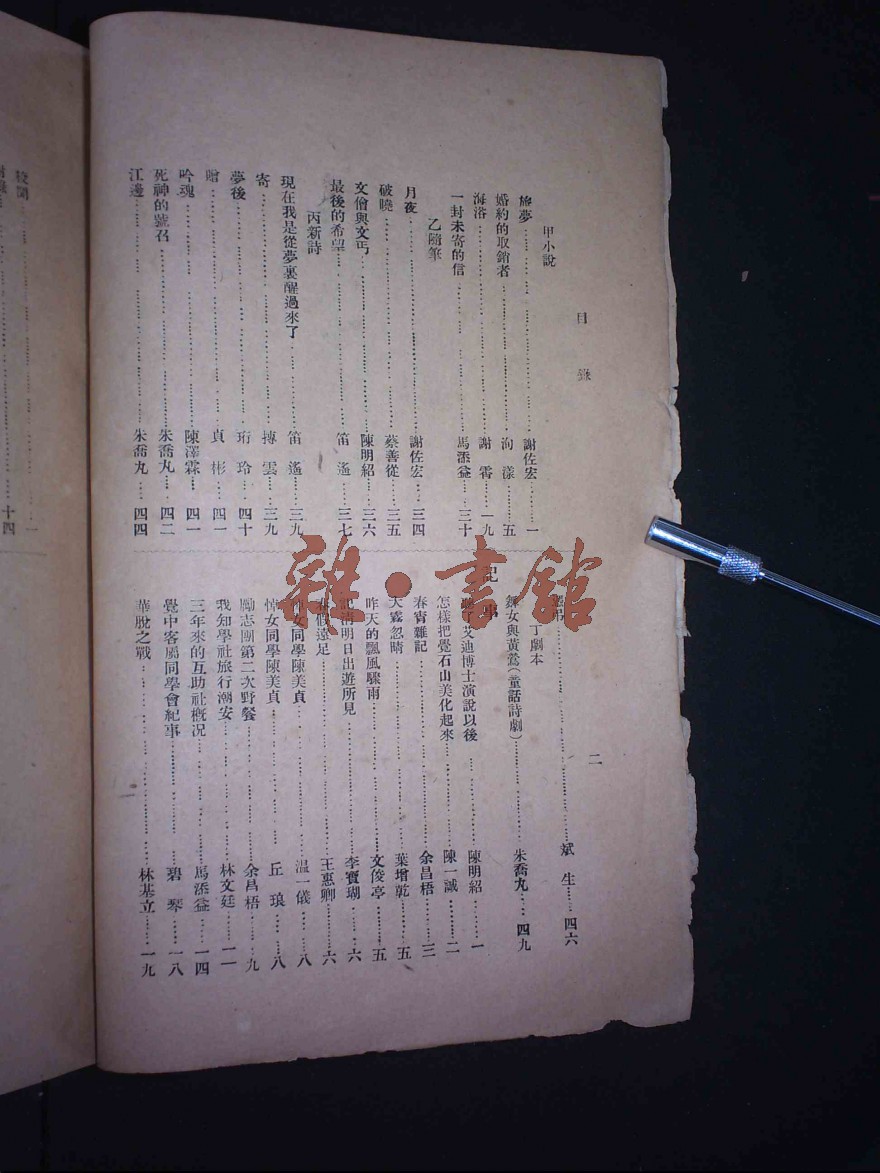 目錄
甲小說
旅夢 謝佐宏 一
婚約的取銷者 洵漾 五
海浴 謝霄 一九
一封未寄的信 馬添益 三十
乙隨筆
月夜 謝佐宏 三四
破曉 蔡善從 三五
文儈與文丐 陳明紹 三六
最後的希望 笛遙 三七
丙新詩
現在我是從夢裏醒過來了 笛遙 三九
寄 摶雲 三九
夢後 珩玲 四十
贈 貞彬 四一
吟魂 陳澤霖 四一
死神的號召 朱喬丸 四二
江邊 朱喬丸 四四
二
斌生 四六
丁劇本
舞女與黃鶯(童話詩劇) 朱喬丸 四九
記事
聽了艾迪博士演說以後 陳明紹 一
怎樣把覺石山美化起來 陳一誠 二
春宵雜記 余昌梧 三
大霧忽晴 葉增乾 五
昨天的飄風驟雨 文俊亭 五
記清明日出遊所見 李寶瑚 六
春假遠足 王惠卿 六
悼女同學陳美貞 溫一儀 八
悼女同學陳美貞 丘琅 八
勵志團第二次野餐 余昌梧 九
我知學社旅行潮安 林文廷 一一
三年來的互助社概况 馬添益 一四
覺中客屬同學會紀事 碧琴 一八
華脫之戰 林基立 一九
校聞 一
十四
雜·書館